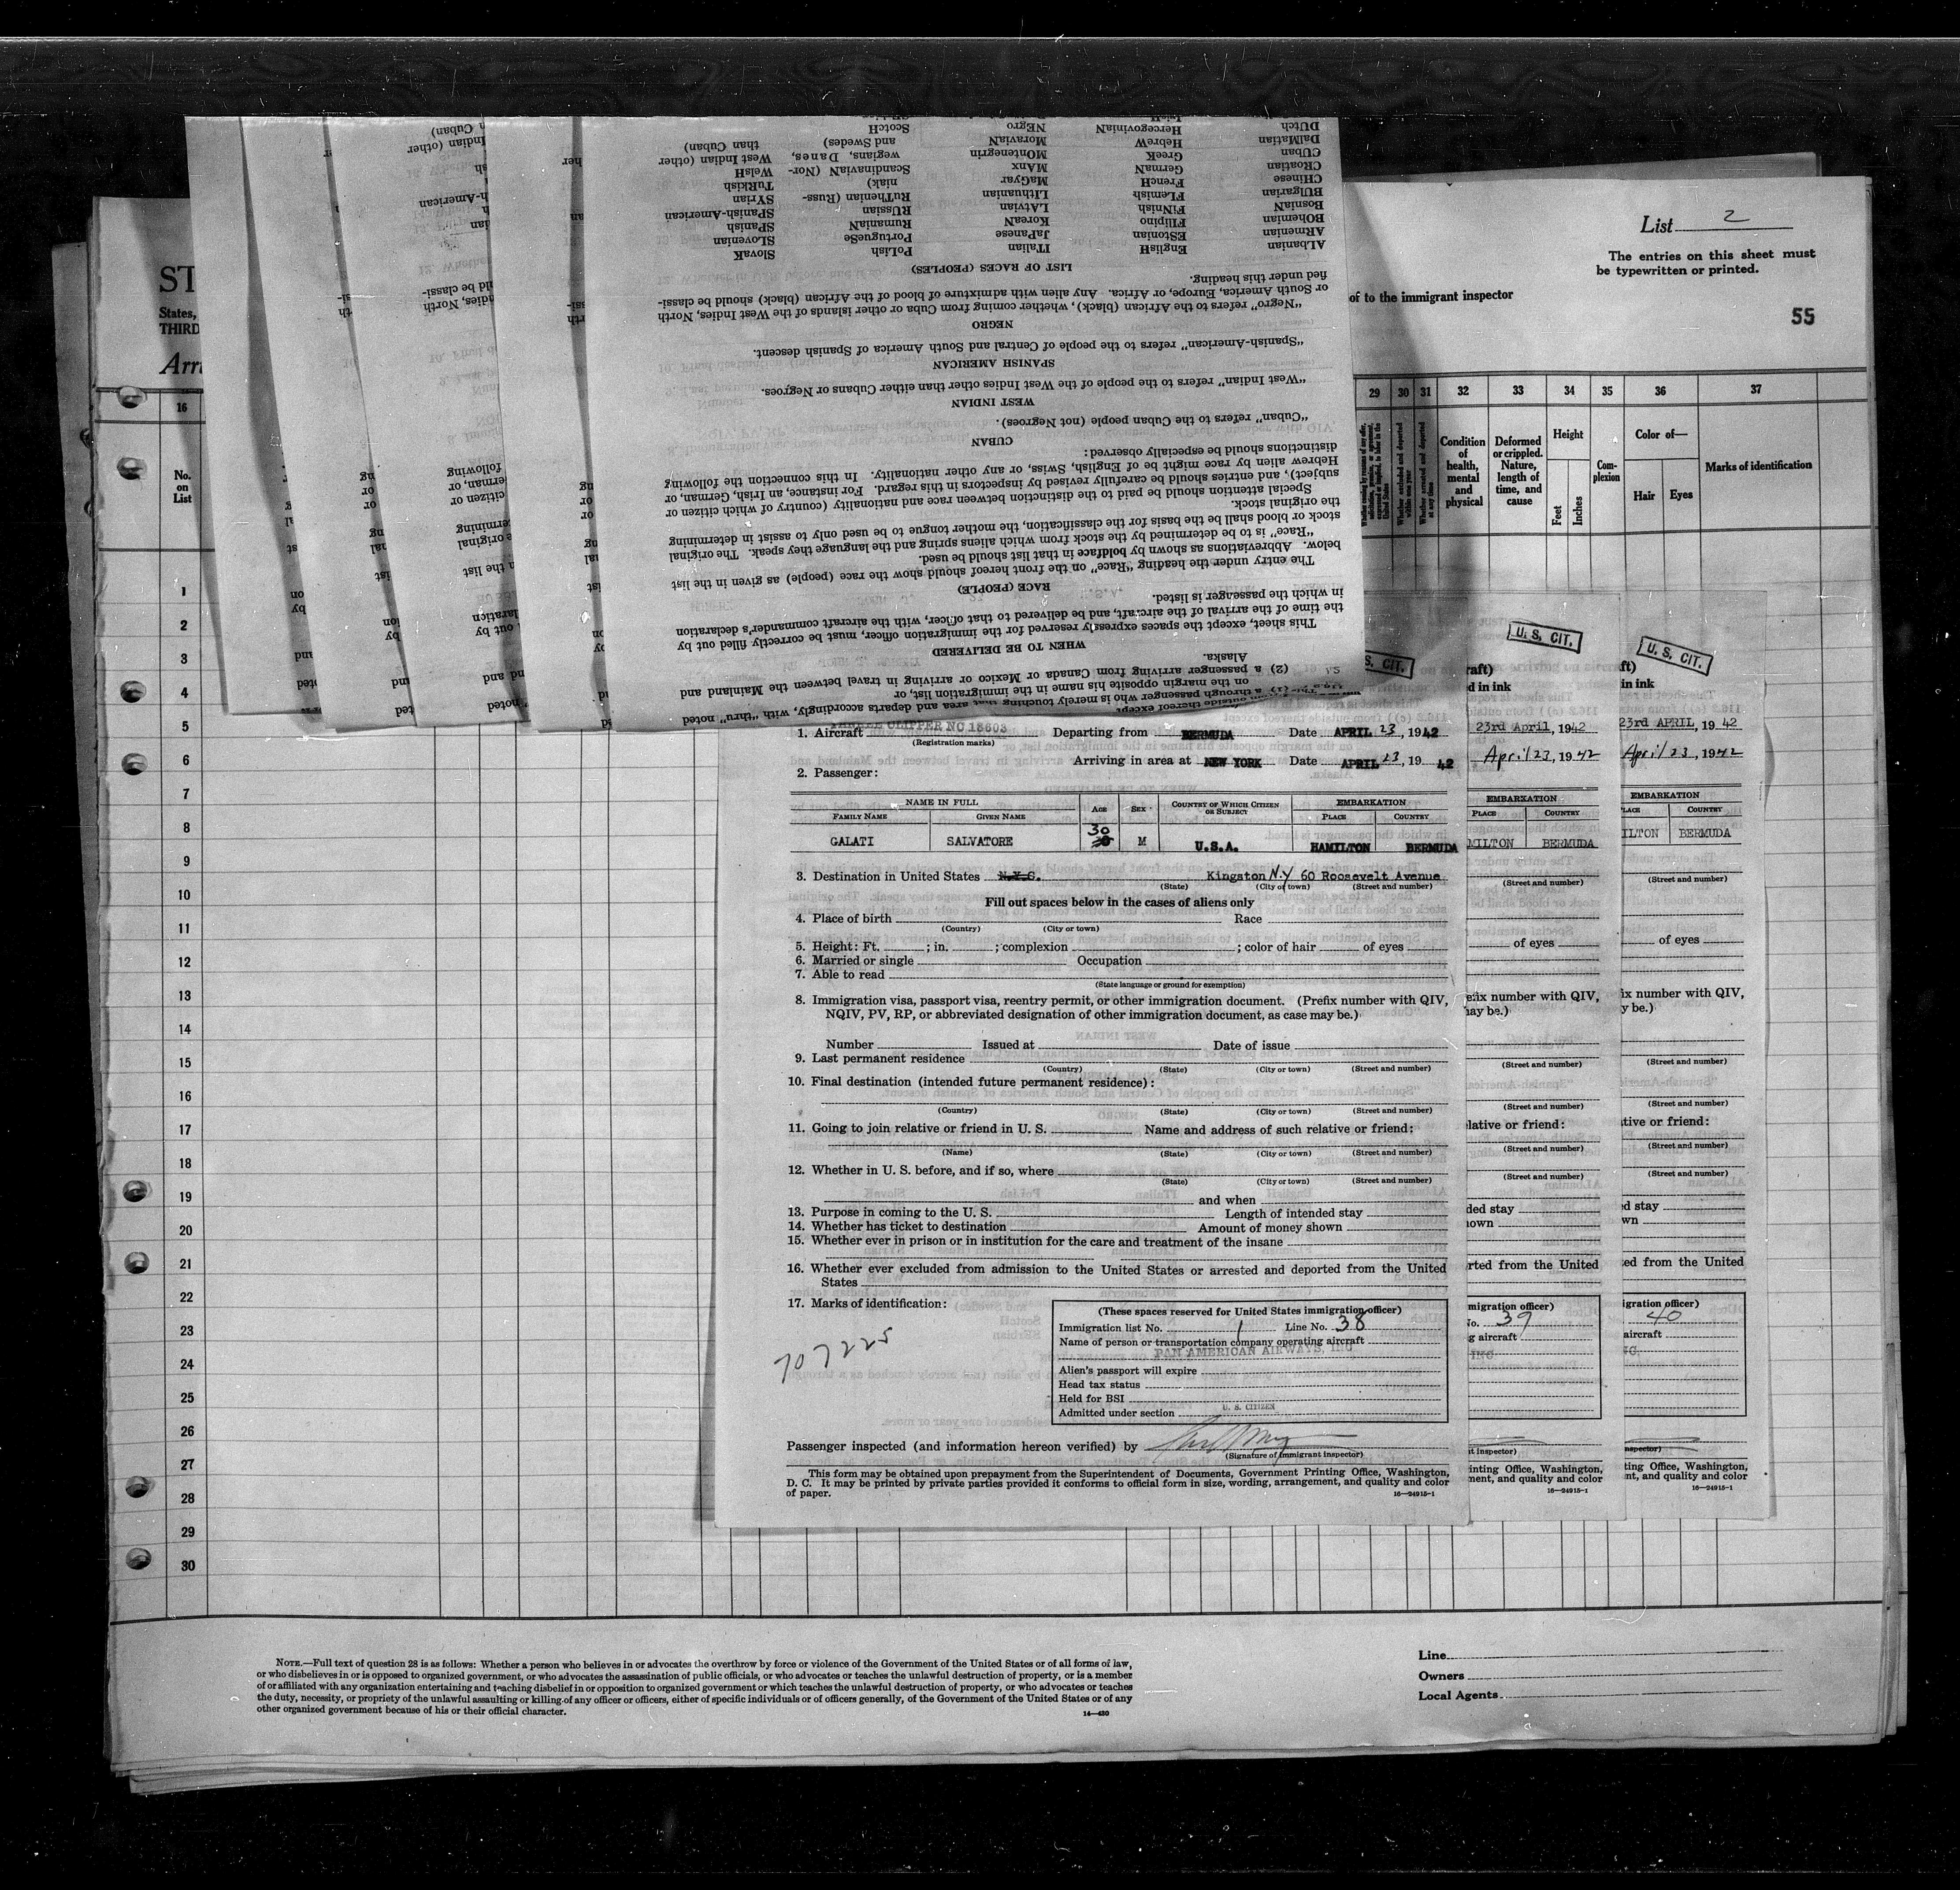 List 2
The entries on this sheet must
be typewritten or printed.
of to the immigrant inspector
55
ST
States,
THIRD
16
29 30 31 32 33 34 35 36 37
No.
on
List
Condition
of
health,
mental
and
physical
Deformed
or crippled.
Nature,
length of
time, and
cause
Height
Feet
Inches
Com-
plexion
Color of—
Hair Eyes
Marks of identification
1
2
3
4
5
6
7
8
9
10
11
12
13
14
15
16
17
18
19
20
21
22
23
24
25
26
27
28
29
30
on the margin opposite his name in the immigration list, or
(2) a passenger arriving from Canada or Mexico or arriving in travel between the Mainland and
Alaska.
WHEN TO BE DELIVERED
This sheet, except the spaces expressly reserved for the immigration officer, must be correctly filled out by
the time of the arrival of the aircraft, and be delivered to that officer, with the aircraft commander's declaration
in which the passenger is listed.
RACE (PEOPLE)
The entry under the heading "Race" on the front hereof should show the race (people) as given in the list
below. Abbreviations as shown by boldface in that list should be used.
"Race" is to be determined by the stock from which aliens spring and the language they speak. The original
stock or blood shall be the basis for the classification, the mother tongue to be used only to assist in determining
the original stock.
Special attention should be paid to the distinction between race and nationality (country of which citizen or
subject), and entries should be carefully revised by inspectors in this regard. For instance, an Irish, German, or
Hebrew alien by race might be of English, Swiss, or any other nationality. In this connection the following
distinctions should be especially observed:
CUBAN
"Cuban" refers to the Cuban people (not Negroes).
WEST INDIAN
"West Indian" refers to the people of the West Indies other than either Cubans or Negroes.
SPANISH AMERICAN
"Spanish-American" refers to the people of Central and South America of Spanish descent.
NEGRO
"Negro" refers to the African (black), whether coming from Cuba or other islands of the West Indies, North
or South America, Europe, or Africa. Any alien with admixture of blood of the African (black) should be classi-
fied under this heading.
LIST OF RACES (PEOPLES)
ALbanian EnglisH ITalian PoLish SlovaK
ARmenian EStonian JaPanese PortugueSe SLOvenian
BOhemian Filipino KoreaN RumaniaN SPanish
BosniaN FiNNish LAtvian RUSsian SPanish-American
BUlgarian FLemish LIthuanian RuThenian (Russ- SYrian
CHinese FrencH MaGyar niak) TuRkish
CRoatian GermaN MAnx ScandinaviaN (Nor- WelsH
CUban GreeK MOntenegrin wegians, Danes, West Indian (other
DalMatian HebreW MoraviaN and Swedes) than Cuban)
DUtch HercegovinaN NEgro ScotcH
U. S. CIT.
U. S. CIT.
1. Aircraft YANKEE CLIPPER NC 18603 Departing from BERMUDA Date APRIL 23, 1942
(Registration marks)
Arriving in area at NEW YORK Date APRIL 23, 19 42
2. Passenger:
NAME IN FULL AGE SEX COUNTRY OF WHICH CITIZEN OR SUBJECT EMBARKATION
FAMILY NAME GIVEN NAME PLACE COUNTRY
GALATI SALVATORE 30 M U.S.A. HAMILTON BERMUDA
3. Destination in United States N.Y.C. Kingston N.Y 60 Roosevelt Avenue
(State) (City or town) (Street and number)
Fill out spaces below in the cases of aliens only
4. Place of birth Race
(Country) (City or town)
5. Height: Ft. ; in. ; complexion ; color of hair of eyes
6. Married or single Occupation
7. Able to read
(State language or ground for exemption)
8. Immigration visa, passport visa, reentry permit, or other immigration document. (Prefix number with QIV,
NQIV, PV, RP, or abbreviated designation of other immigration document, as case may be.)
Number Issued at Date of issue
9. Last permanent residence
(Country) (State) (City or town) (Street and number)
10. Final destination (intended future permanent residence):
(Country) (State) (City or town) (Street and number)
11. Going to join relative or friend in U. S. Name and address of such relative or friend:
(Name) (State) (City or town) (Street and number)
12. Whether in U. S. before, and if so, where
(State) (City or town) (Street and number)
and when
13. Purpose in coming to the U. S. Length of intended stay
14. Whether has ticket to destination Amount of money shown
15. Whether ever in prison or in institution for the care and treatment of the insane
16. Whether ever excluded from admission to the United States or arrested and deported from the United
States
17. Marks of identification:
707225
(These spaces reserved for United States immigration officer)
Immigration list No. 1 Line No. 38
Name of person or transportation company operating aircraft
PAN AMERICAN AIRWAYS, INC
Alien's passport will expire
Head tax status
Held for BSI
Admitted under section U. S. CITIZEN
Passenger inspected (and information hereon verified) by
(Signature of immigrant inspector)
This form may be obtained upon prepayment from the Superintendent of Documents, Government Printing Office, Washington,
D. C. It may be printed by private parties provided it conforms to official form in size, wording, arrangement, and quality and color
of paper. 16—24915-1
raft)
d in ink
23rd April, 1942
April 23, 1942
EMBARKATION
PLACE COUNTRY
MILTON BERMUDA
(Street and number)
of eyes
efix number with QIV,
nay be.)
(Street and number)
(Street and number)
lative or friend:
(Street and number)
(Street and number)
ded stay
own
rted from the United
migration officer)
No. 39
g aircraft
INC
t inspector)
inting Office, Washington,
ment, and quality and color
16—24915-1
ft)
in ink
23rd APRIL, 1942
April 23, 1942
EMBARKATION
LACE COUNTRY
ILTON BERMUDA
(Street and number)
of eyes
ix number with QIV,
y be.)
(Street and number)
(Street and number)
tive or friend:
(Street and number)
(Street and number)
d stay
wn
ed from the United
igration officer)
40
aircraft
nspector)
ting Office, Washington,
nt, and quality and color
16—24915-1
NOTE.—Full text of question 28 is as follows: Whether a person who believes in or advocates the overthrow by force or violence of the Government of the United States or of all forms of law,
or who disbelieves in or is opposed to organized government, or who advocates the assassination of public officials, or who advocates or teaches the unlawful destruction of property, or is a member
of or affiliated with any organization entertaining and teaching disbelief in or opposition to organized government or which teaches the unlawful destruction of property, or who advocates or teaches
the duty, necessity, or propriety of the unlawful assaulting or killing of any officer or officers, either of specific individuals or of officers generally, of the Government of the United States or of any
other organized government because of his or their official character.
14—430
Line
Owners
Local Agents